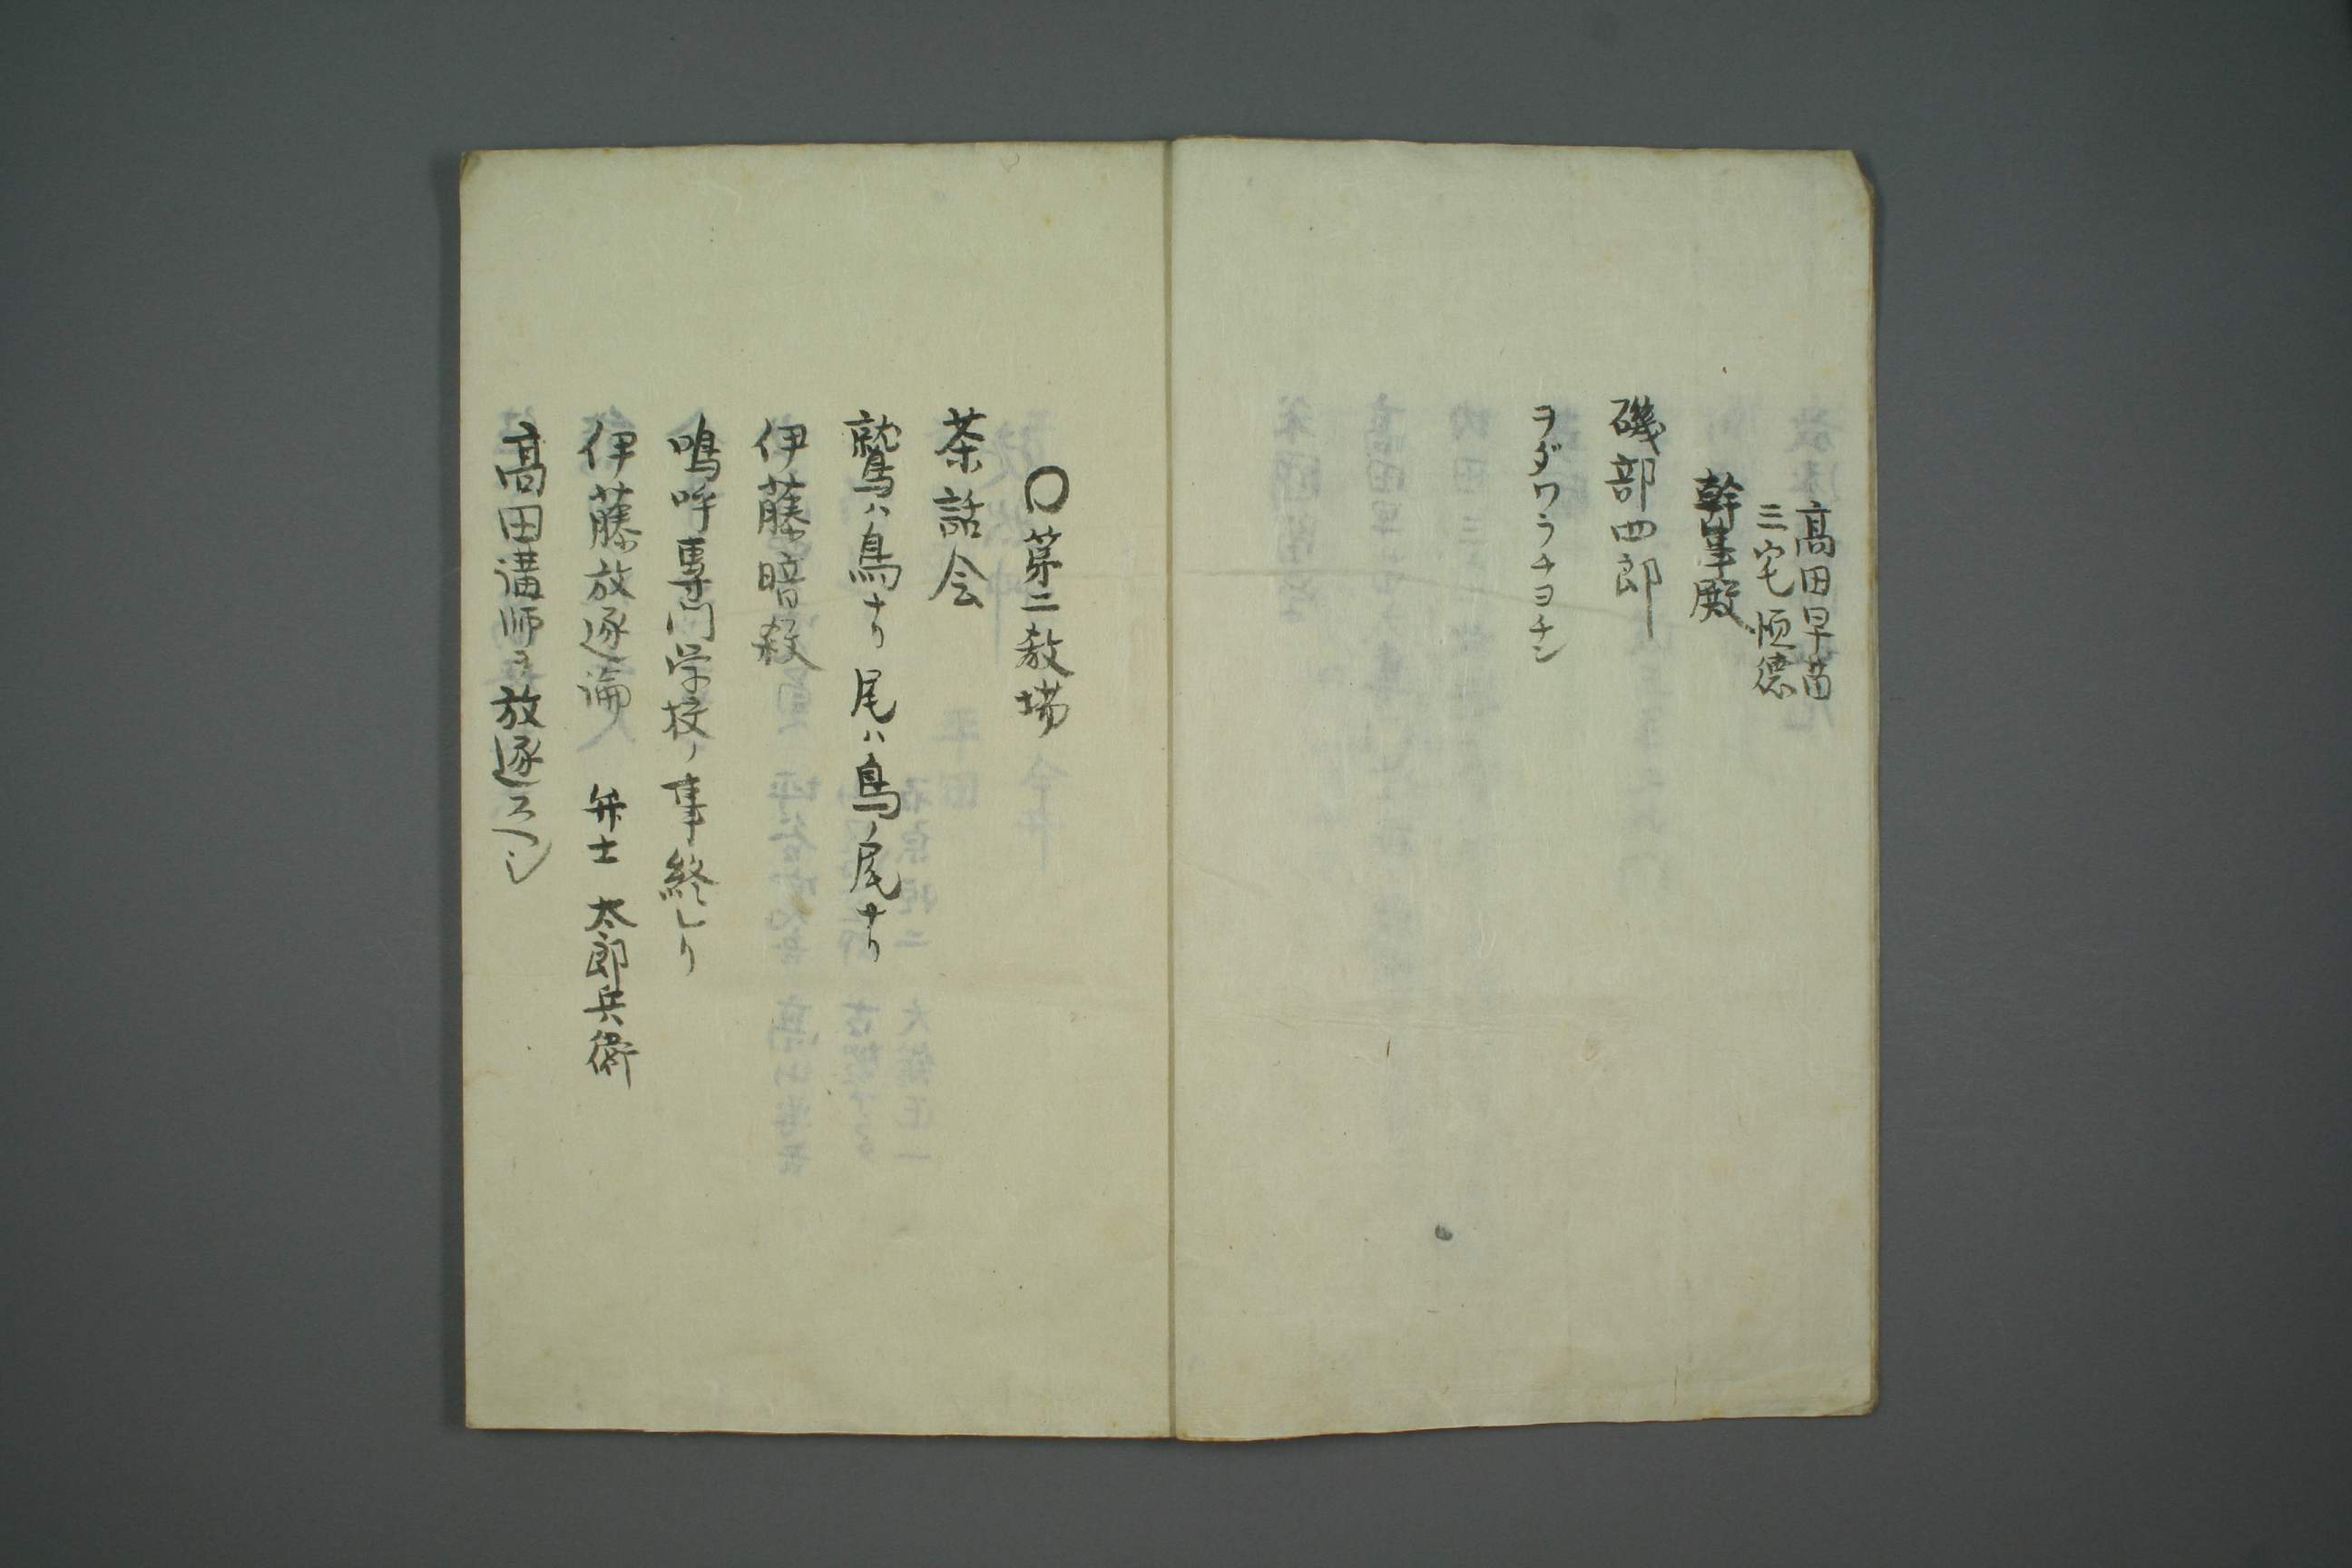 高田早苗
三宅恒徳
幹事殿
磯部四郎
ヲダワラチヨチン
〇第二教場
茶話会
鷲ハ鳥ナリ尾ハ鳥ノ尾ナリ
伊藤暗殺
嗚呼専門学校ノ事終レリ
伊藤放逐論 弁士 太郎兵衛
高田講師ヲ放逐スヘシ